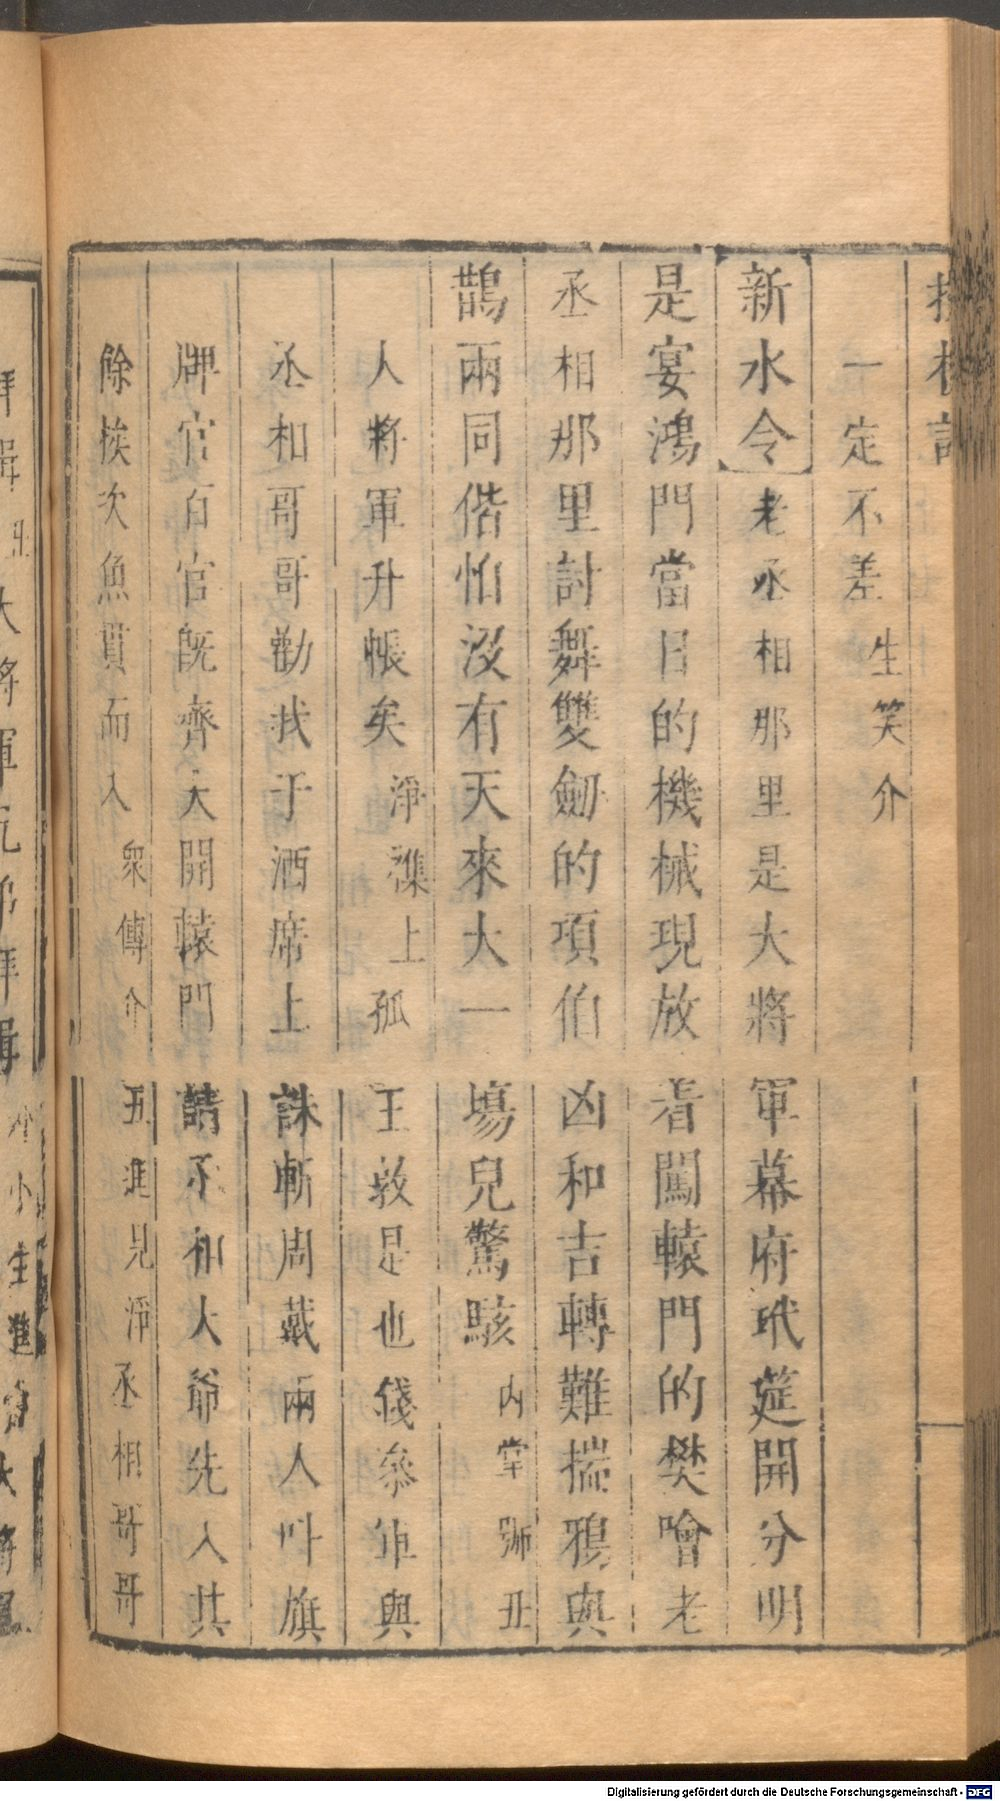 一定不差生笑介
新水令老丞相那里是大將軍幕府玳筵開分明
是宴鴻門當日的機械現放着闖轅門的樊噲老
丞相那里討舞雙劍的項伯凶和吉轉難揣鴉與
鵲兩同偕怕沒有天來大一塲兒驚駭内掌號丑
人將軍升帳矣淨雜上孤王敦是也錢參軍與
丞相哥哥勸我于酒席上誅斬周戴兩人叫旗
牌官百官既齊大開轅門請丞相大爺先入其
餘挨次魚貫而入衆傳介五進見淨丞相哥哥
Digitalisierung gefördert durch die Deutsche Forschungsgemeinschaft - DFG